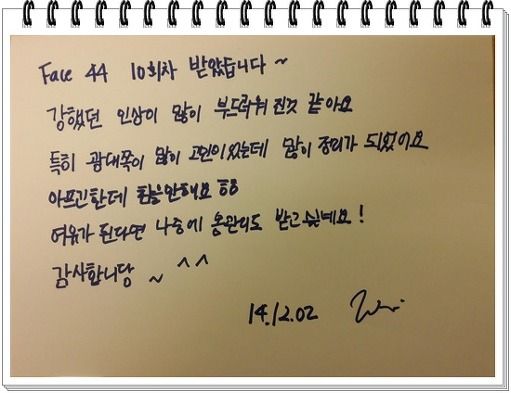 Face 44 10회차 받았습니다 ~
강했던 인상이 많이 부드러워진것 같아요
특히 광대쪽이 많이 고민이었는데 많이 정리가 되었어요
아프긴한데 힘을안해요 ㅎㅎ
여유가 된다면 나중에 몸관리도 받고싶네요!
감사합니당 ~ ^^
14.12.02